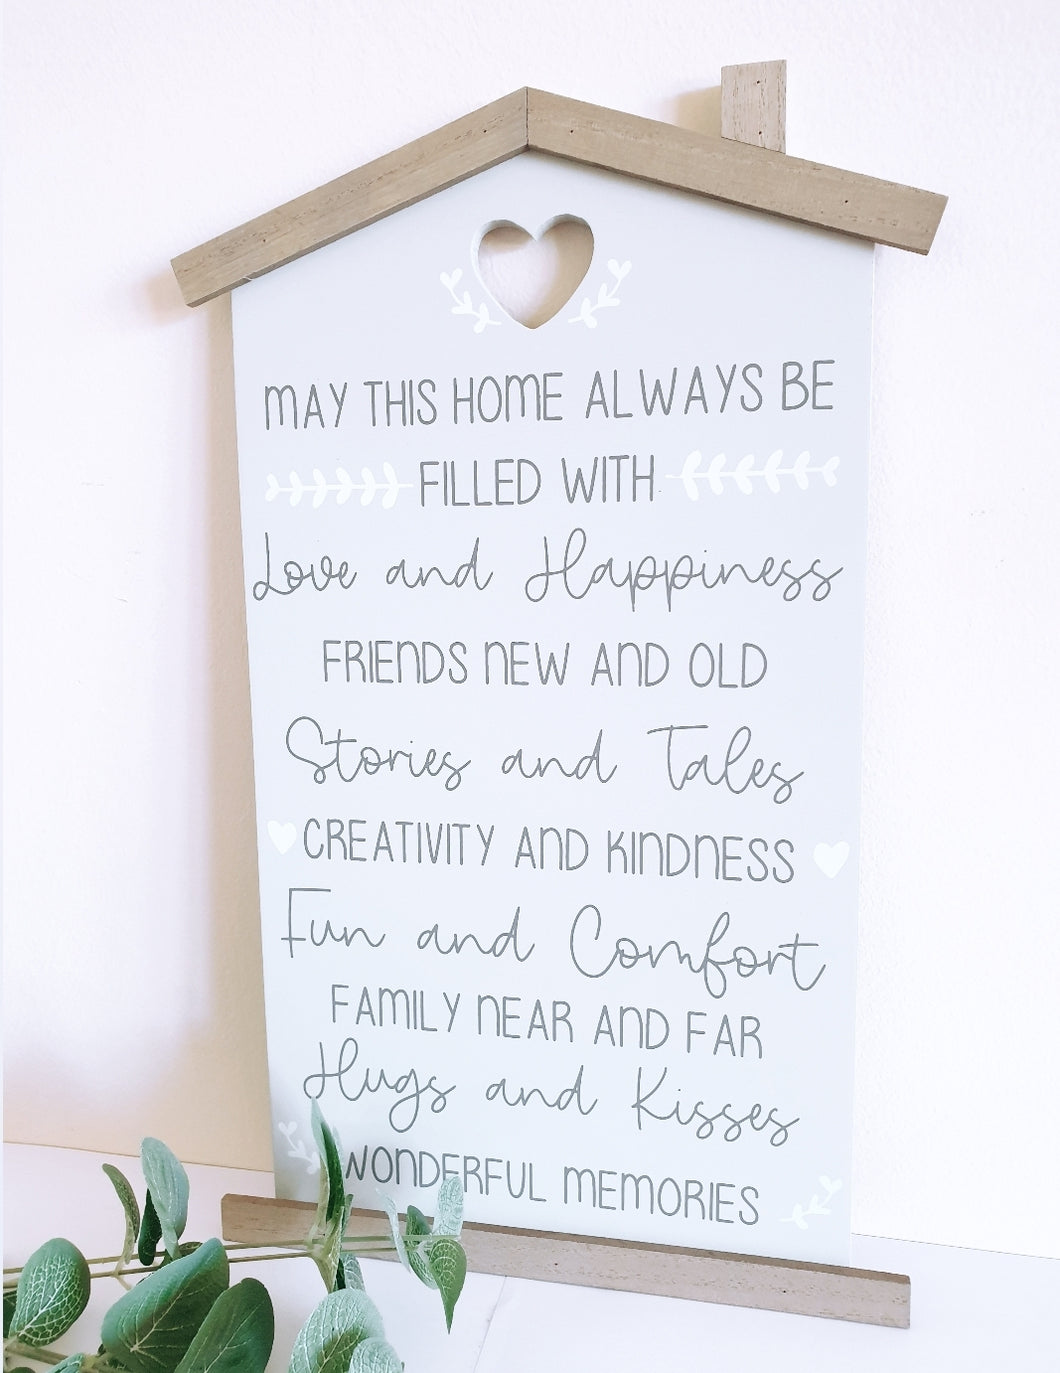 MAY THIS HOME ALWAYS BE
FILLED WITH
Love and Happiness
FRIENDS NEW AND OLD
Stories and Tales
CREATIVITY AND KINDNESS
Fun and Comfort
FAMILY NEAR AND FAR
Hugs and Kisses
WONDERFUL MEMORIES